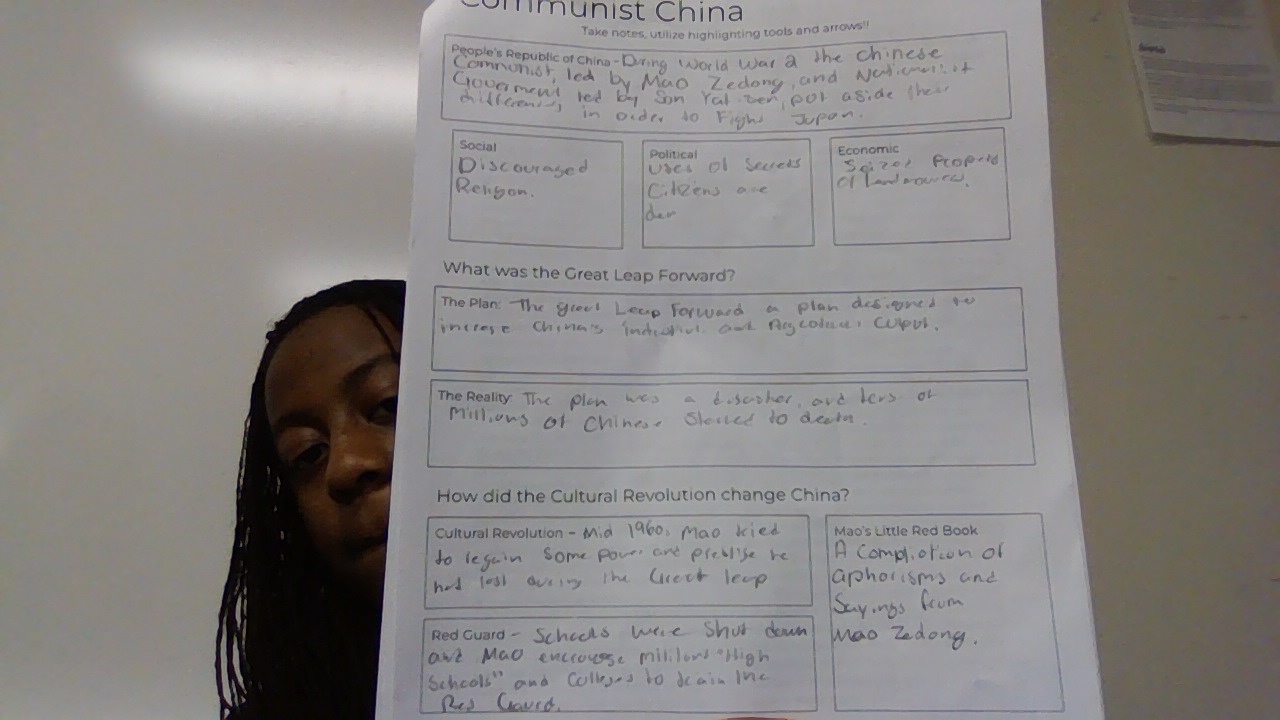 Communist China
Take notes, utilize highlighting tools and arrows!!
People's Republic of China - During World War 2 the Chinese
Communist, led by Mao Zedong, and Nationalist
Goverment led by Son Yat Zen, pot aside their
differences in order to Fight Japan.
Social
Discouraged
Religon.
Political
Uses of Secrets
Citizens are
den
Economic
Seizes Property
of Landowners.
What was the Great Leap Forward?
The Plan: The great Leap Forward a plan designed to
increse China's industrial and output.
The Reality: The plan was a disasther, and tens of
Millions of Chinese Starved to death.
How did the Cultural Revolution change China?
Cultural Revolution - Mid 1960s Mao tried
to regain some power and he
had lost during the Great leap
Mao's Little Red Book
A of
aphorisms and
Sayings from
Mao Zedong.
Red Guard - Schools were Shut down
and Mao "High
Schools" and Colleges to the
Red Gaurd.